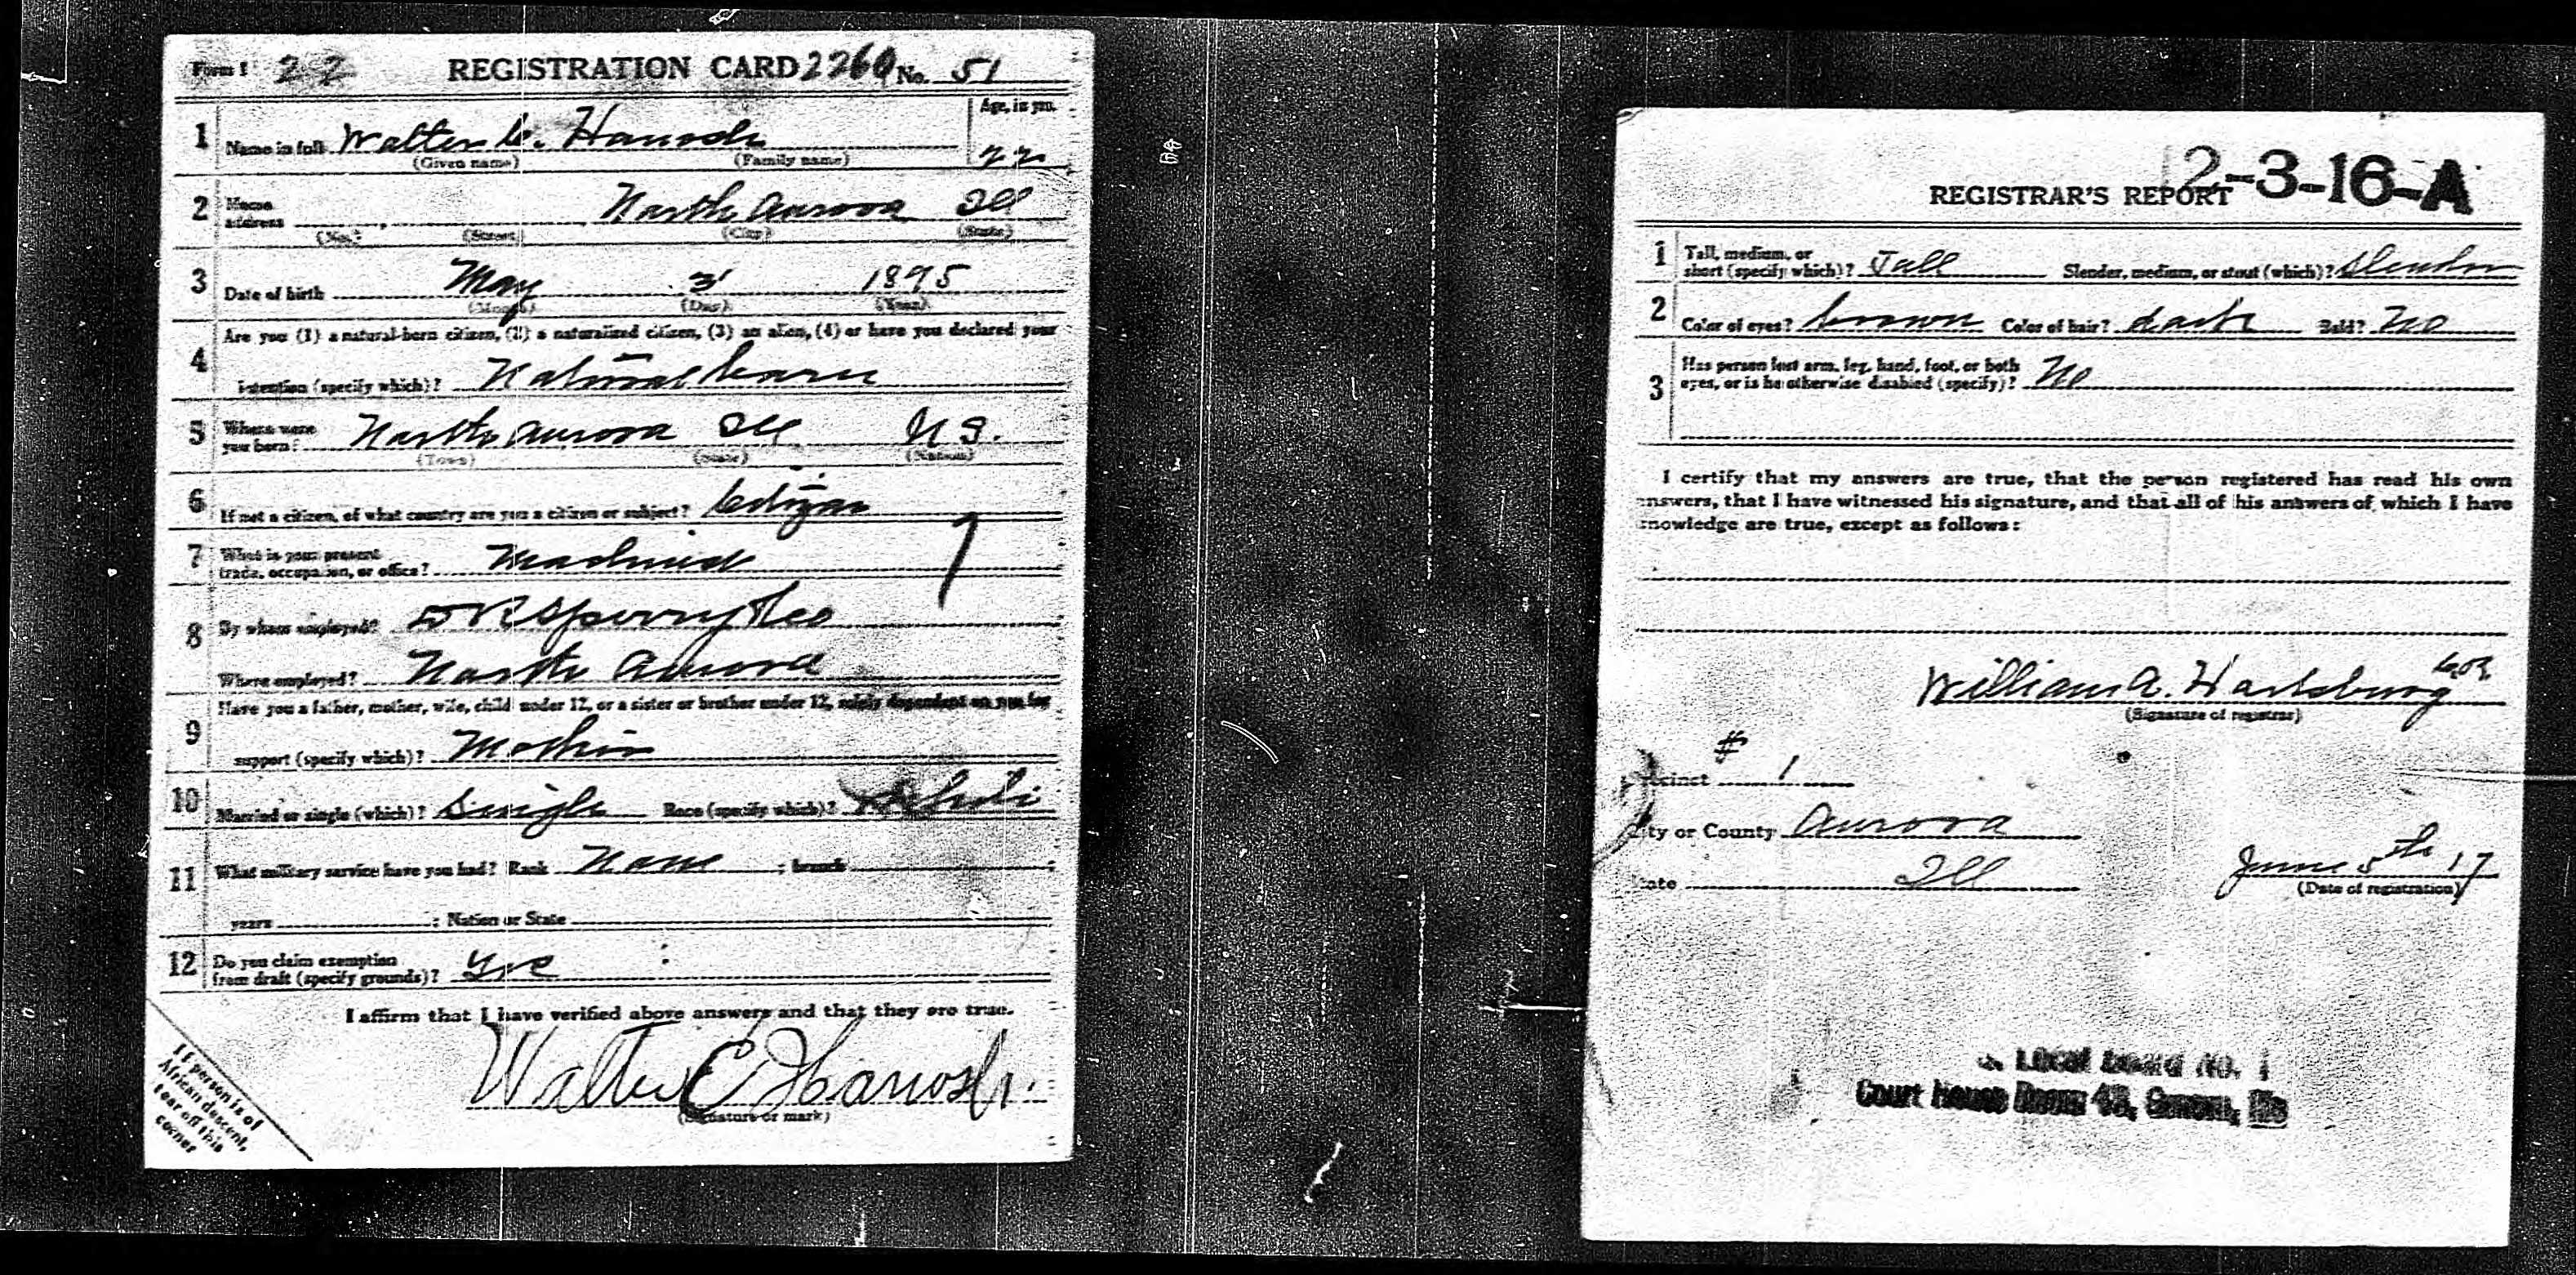 Form 1 22 REGISTRATION CARD 2260 No. 51
Age, in yrs.
1 Name in full Walter E. Hanosh 22
(Given name) (Family name)
2 Home address North Aurora Ill
(No.) (Street) (City) (State)
3 Date of birth May 3 1895
(Month) (Day) (Year)
Are you (1) a natural-born citizen, (2) a naturalized citizen, (3) an alien, (4) or have you declared your
4 intention (specify which)? Natural born
5 Where were you born? North Aurora Ill U S.
(Town) (State) (Nation)
6 If not a citizen, of what country are you a citizen or subject? Citizen
7 What is your present
trade, occupation, or office? Machinist
8 By whom employed? D R Sperry & Co
Where employed? North Aurora
Have you a father, mother, wife, child under 12, or a sister or brother under 12, solely dependent on you for
9 support (specify which)? Mother
10 Married or single (which)? Single Race (specify which)? White
11 What military service have you had? Rank None ; branch ;
years ; Nation or State
12 Do you claim exemption
from draft (specify grounds)? Yes
I affirm that I have verified above answers and that they are true.
Walter E Hanosh.
(Signature or mark)
If person is of
African descent,
tear off this
corner
2-3-16-A
REGISTRAR'S REPORT
1 Tall, medium, or
short (specify which)? Tall Slender, medium, or stout (which)? Slender
2 Color of eyes? brown Color of hair? dark Bald? No
3 Has person lost arm, leg, hand, foot, or both
eyes, or is he otherwise disabled (specify)? No
I certify that my answers are true, that the person registered has read his own
answers, that I have witnessed his signature, and that all of his answers of which I have
knowledge are true, except as follows:
William A. Hartsburg
(Signature of registrar)
Precinct # 1
City or County Aurora
State Ill
June 5th 17
(Date of registration)
Local Board No. 1
Court House Room 43, Geneva, Ills